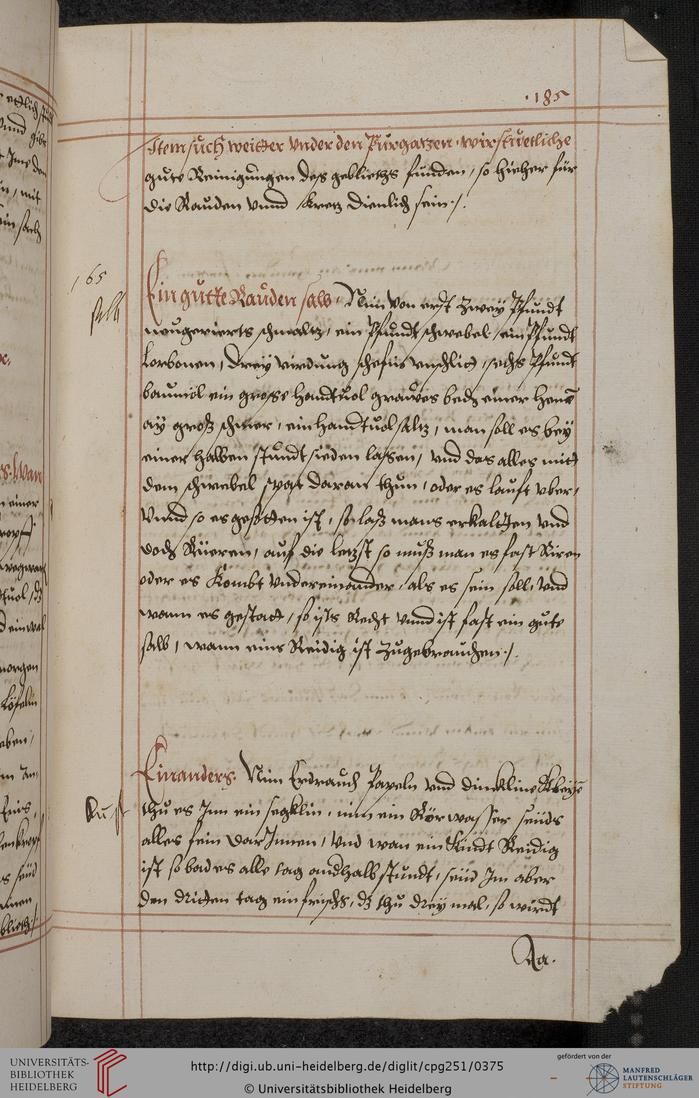 ·185
Item such weitter vnder den Purgatzen, wirstu etliche
gute Reinigungen deß gebliets funden, so hieher für
die Rauden vnnd Kretz dienlich sein ./.
165
Salb
Ein gutte Rauden salb, Nim von erst zwey Pfundt
neugevierts schmaltz, ein Pfundt schwebel, ein Pfundt
Lorbonen, drey virdung schefin vnschlit, sechs Pfundt
baumöl ein grosse handtuol grawes bech einer henē
ay groß schmer, ein handtuol saltz, man soll es bey
einer halben stundt sieden lassen, vnd das alles mitt
dem schwebel spat daran thun, oder es lauft vber,
Vnnd so es gesotten ist, so laß mans erkaltten vnd
doch Rüeren, auf die letzst so muß man es fast Riren
oder es kombt vndereinander, als es sein soll, vnd
wann es gestatt, so ists Recht vnnd ist fast ein gute
salb, wann eins Reidig ist zugebrauchen ./.
Ein anders. Nim Erdrauch Papeln vnd dinckline
thu es Inn ein secklin, nim ein Rör wasser seüds
alles fein darInnen, Vnd wan ein Kindt Reidig
ist so bad es alle tag andhalb stundt, seüd Im aber
den dritten tag ein frischs, dz thu drey mal, so wirdt
Aa.
UNIVERSITÄTS-
BIBLIOTHEK
HEIDELBERG
http://digi.ub.uni-heidelberg.de/diglit/cpg251/0375
© Universitätsbibliothek Heidelberg
gefördert von der
MANFRED
LAUTENSCHLÄGER
STIFTUNG